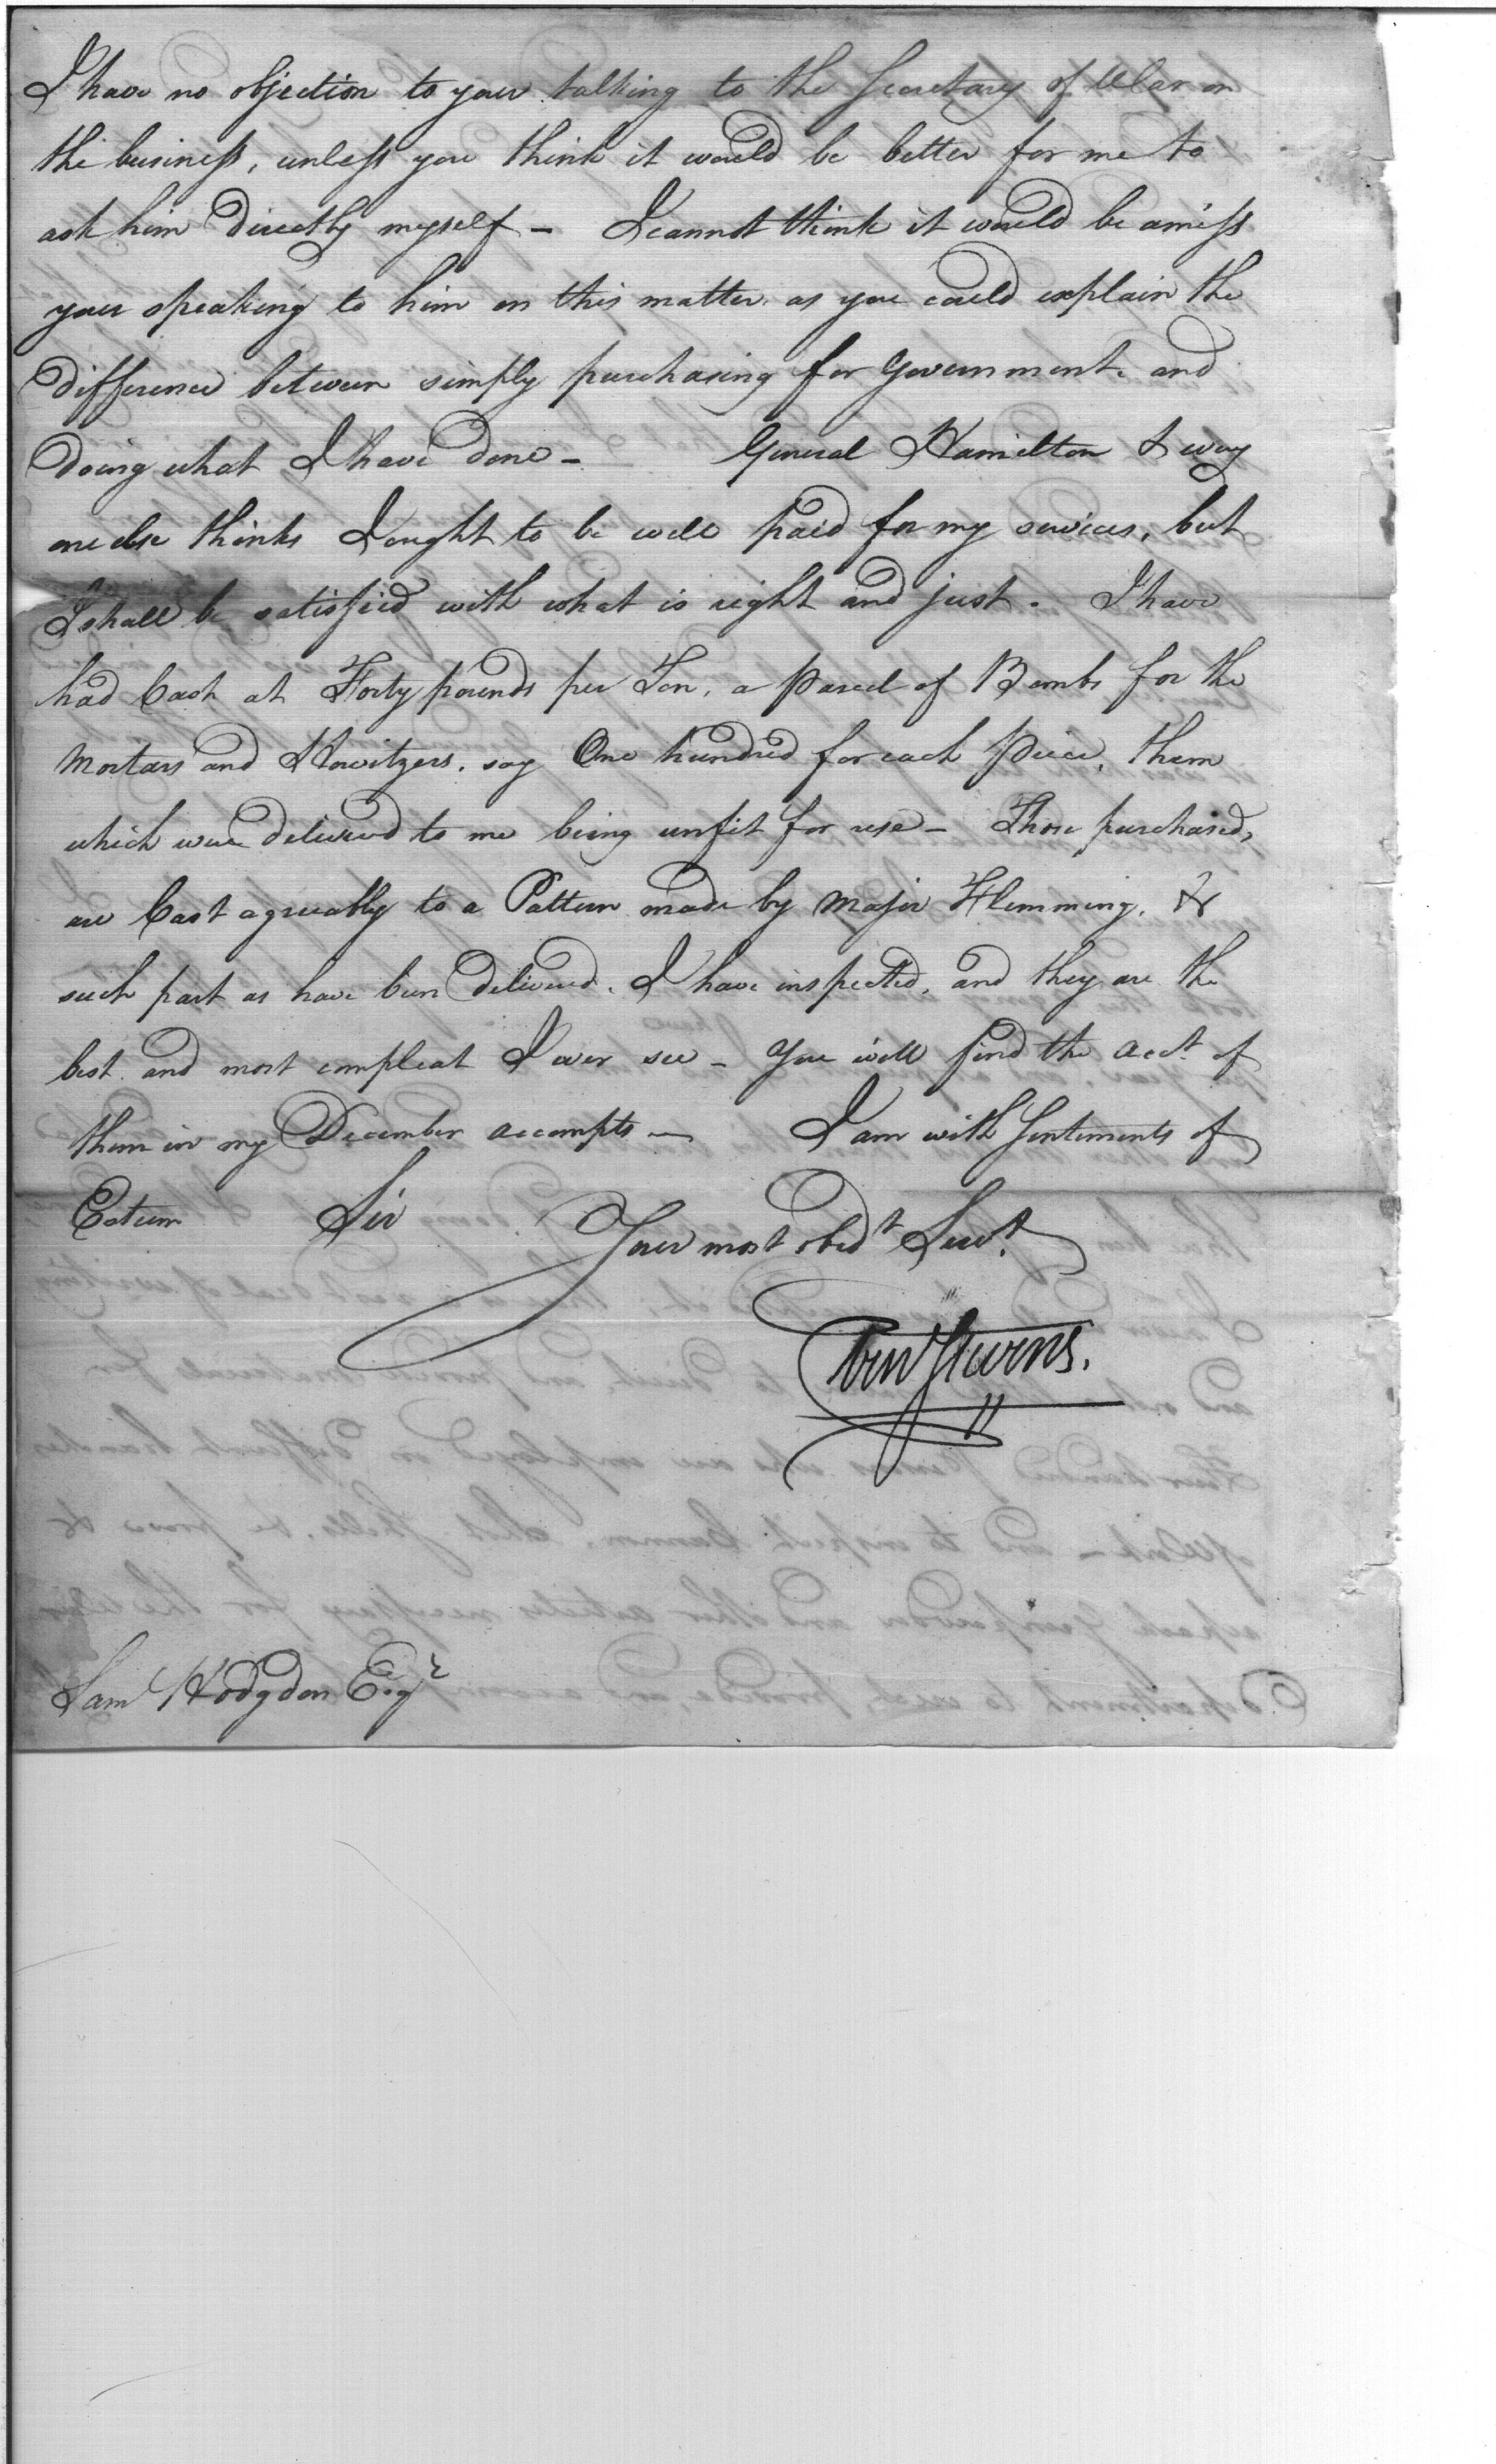 I have no objection to your talking to the Secretary of War on
the business, unless you think it would be better for me to
ask him directly myself – I cannot think it would be amiss
your speaking to him on this matter, as you could explain the
difference between simply purchasing for Government and
doing what I have done – General Hamilton & every
one else thinks I ought to be well paid for my services, but
I shall be satisfied with what is right and just. I have
had Cast at Forty pounds per Ton, a parcel of Bombs for the
Mortars and Howitzers, say One hundred for each Piece, them
which were delivered to me being unfit for use – Those purchased,
are Cast agreeably to a Pattern made by Major Flemming, &
such part as have been delivered, I have inspected, and they are the
best and most compleat I ever see – You will find the Acct. of
them in my December accompts – I am with Sentiments of
Esteem Sir
Your most obedt Servt.
Eben Stevens.
Saml Hodgdon Esqr